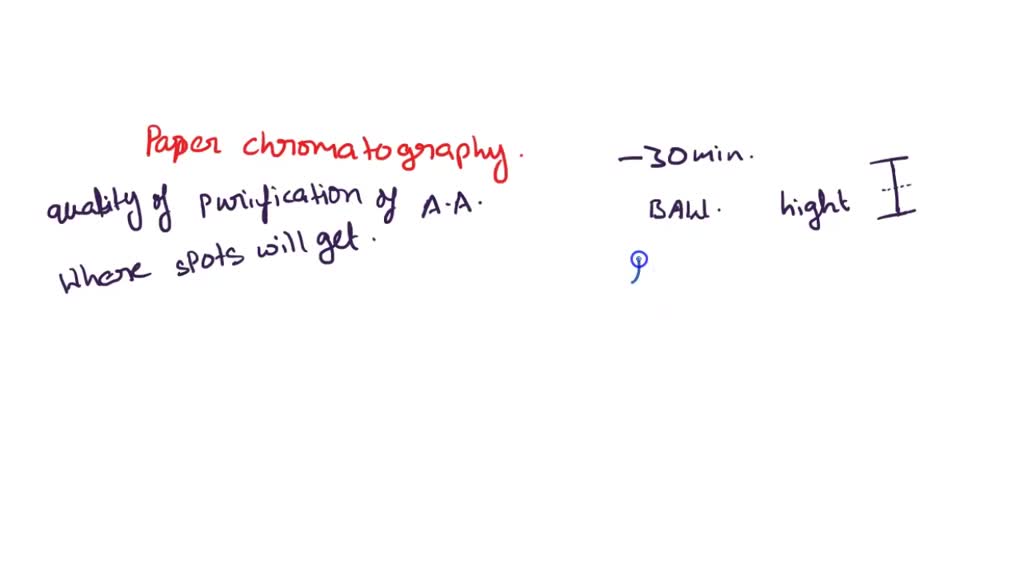 Paper chromatography.
quality of purification of A.A.
Where spots will get.
-30 min.
BAW. hight